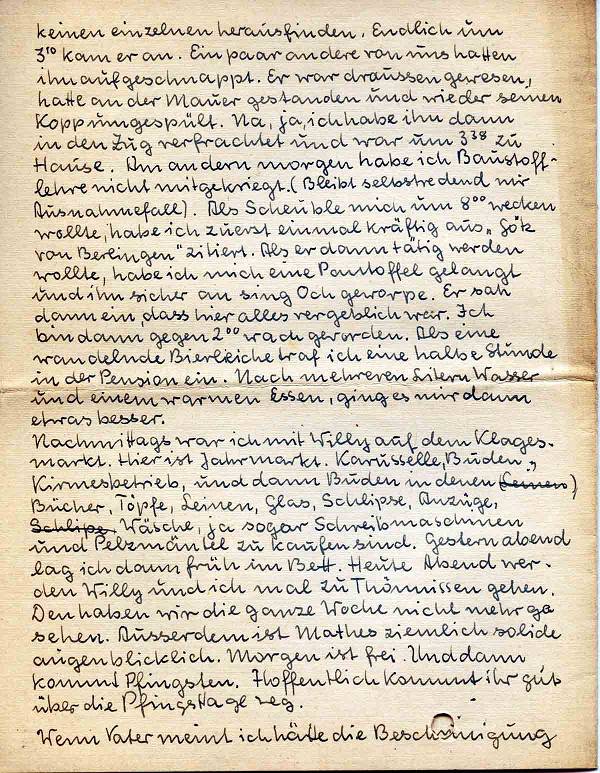 keinen einzelnen herausfinden. Endlich um
3¹⁰ kam er an. Ein paar andere von uns hatten
ihn aufgeschnappt. Er war draussen gewesen,
hatte an der Mauer gestanden und wieder seinen
Kopp umgespült. Na, ja, ich habe ihn dann
in den Zug verfrachtet und war um 3³⁸ zu
Hause. Am andern morgen habe ich Baustoff-
lehre nicht mitgekriegt. (Bleibt selbstredend nur
Ausnahmefall). Als Scheuble mich um 8⁰⁰ wecken
wollte, habe ich zuerst einmal kräftig aus „Götz
von Berlingen" zitiert. Als er dann tätig werden
wollte, habe ich mich eine Pantoffel gelangt
und ihn sicher an sing Och geworpe. Er sah
dann ein, dass hier alles vergeblich war. Ich
bin dann gegen 2⁰⁰ wach geworden. Als eine
wandelnde Bierleiche traf ich eine halbe Stunde
in der Pension ein. Nach mehreren Litern Wasser
und einem warmen Essen, ging es mir dann
etwas besser.
Nachmittags war ich mit Willy auf dem Klages-
markt. Hier ist Jahrmarkt. Karusselle, Buden,
Kirmesbetrieb, und dann Buden in denen (Leinen)
Bücher, Töpfe, Leinen, Glas, Schlipse, Anzüge,
Schlipe, Wäsche, ja sogar Schreibmaschinen
und Pelzmäntel zu kaufen sind. Gestern abend
lag ich dann früh im Bett. Heute Abend wer-
den Willy und ich mal zu Thönnissen gehen.
Den haben wir die ganze Woche nicht mehr ge
sehen. Ausserdem ist Mathes ziemlich solide
augenblicklich. Morgen ist frei. Und dann
kommt Pfingsten. Hoffentlich kommt ihr gut
über die Pfingsttage weg.
Wenn Vater meint ich hätte die Bescheinigung